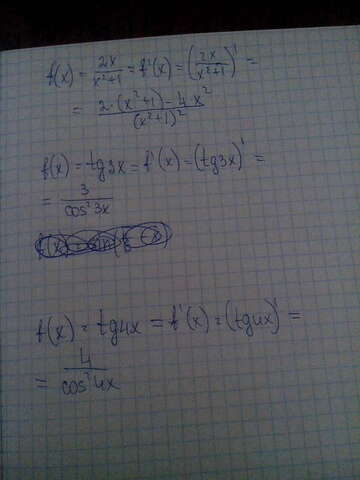 f(x) = 2x/(x²+1) = f'(x) = (2x/(x²+1))' =
= (2·(x²+1) - 4x²)/(x²+1)²
f(x) = tg3x = f'(x) = (tg3x)' =
= 3/cos²3x
f(x) = tg4x = f'(x) = (tg4x)' =
= 4/cos²4x